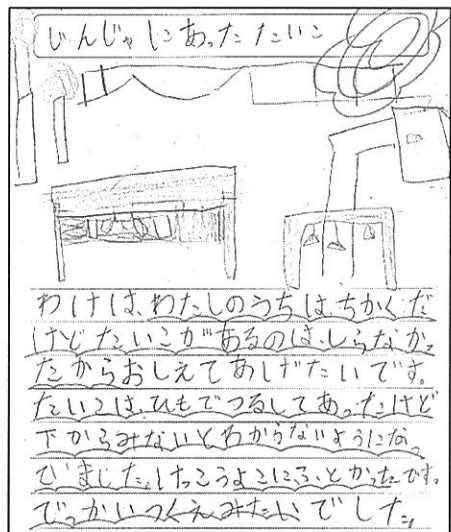 じんじゃにあったたいこ
わけは、わたしのうちは、ちかくだ
けどたいこがあるのは、しらなかっ
たからおしえてあげたいです。
たいこは、ひもでつるしてあったけど
下からみないとわからないようになっ
ていました。けっこうよこにふとかったです。
でっかいつくえみたいでした。